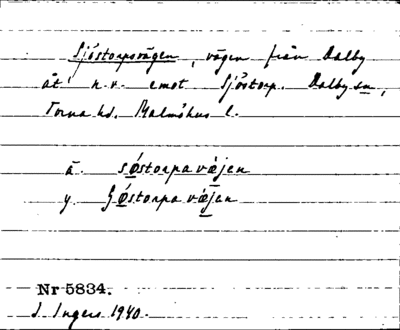 Sjöstorpsvägen, vägen från Dalby
åt n.v. emot Sjöstorp. Dalby sn,
Torna hd. Malmöhus l.
ä. søstorpa væjen
y. Støstorpa væjen
Nr 5834.
I. Ingers 1940.